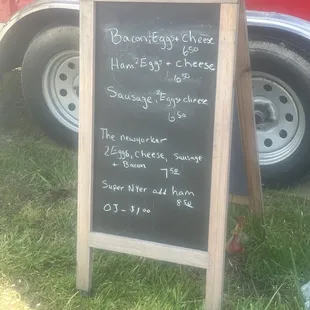 Bacon, 2Eggs + Cheese
6.50
Ham, 2Eggs + Cheese
6.50
Sausage, 2Eggs cheese
6.50
The newyorker
2Eggs, Cheese, Sausage
+ Bacon
7.50
Super NYer add ham
8.50
OJ - $1.00